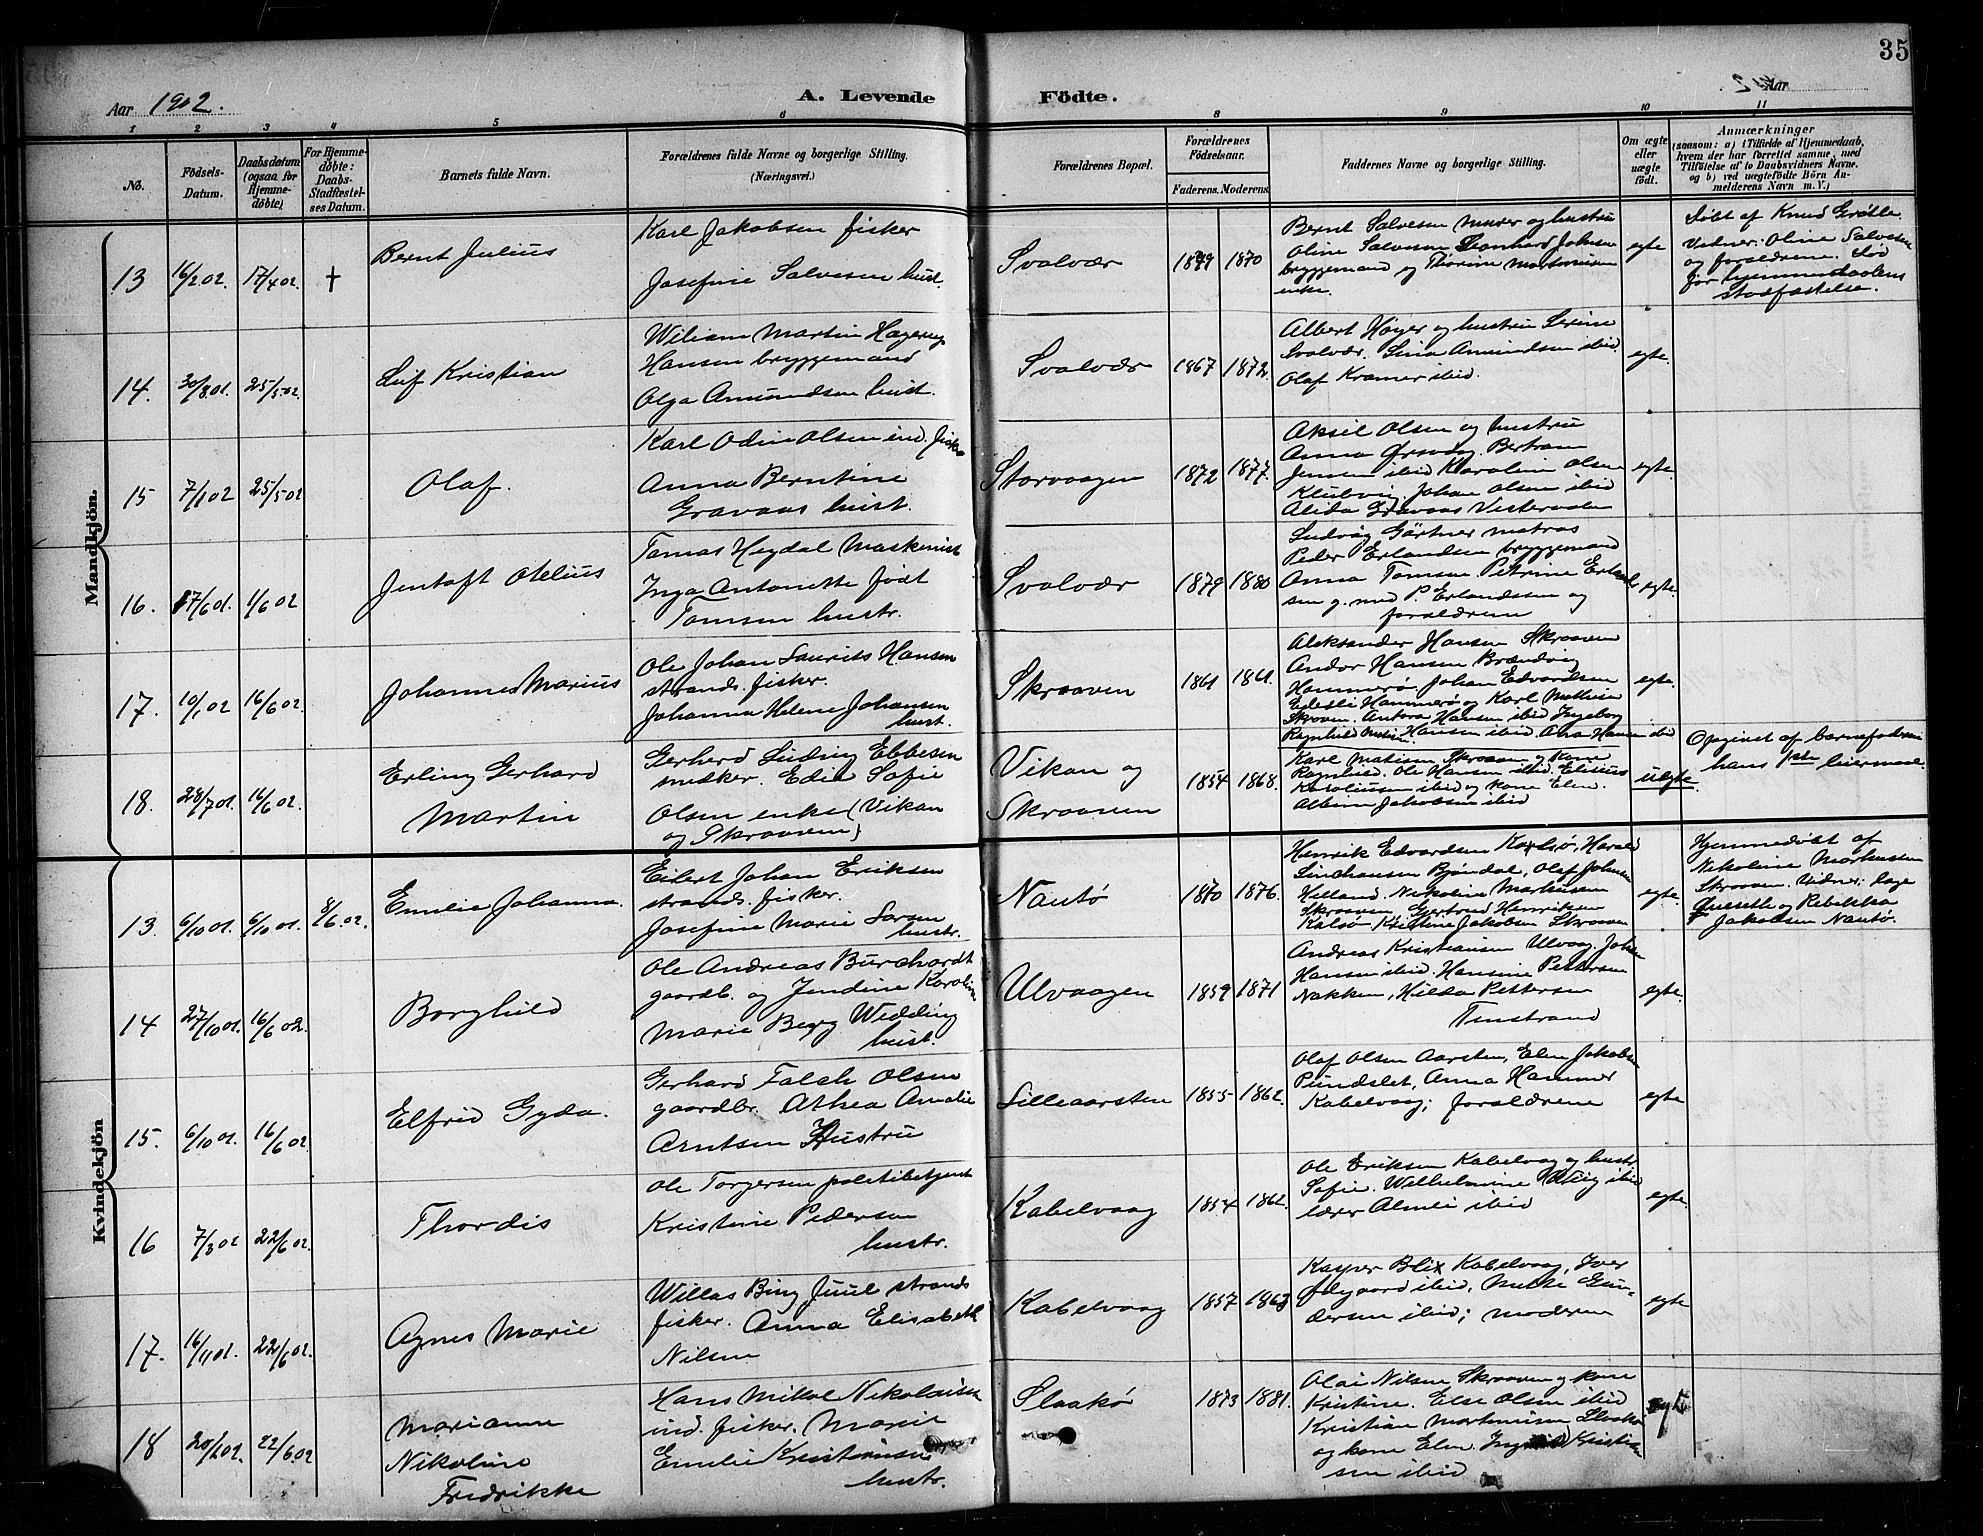 35
Aar 1902.
A. Levende Födte.
Aar
1 2 3 4 5 6 8 9 10 11
No.
Födsels-Datum.
Daabsdatum (ogsaa for Hjemme-døbte)
For Hjemme-døbte: Daabs-Stadfæstel-ses Datum.
Barnets fulde Navn.
Forældrenes fulde Navne og borgerlige Stilling.
(Næringsvei.)
Forældrenes Bopæl.
Forældrenes Födselsaar.
Faderens. Moderens.
Faddernes Navne og borgerlige Stilling.
Om ægte eller uægte født.
Anmærkninger
(saasom: a) i Tilfælde af Hjemmedaab,
hvem der har forrettet samme, med
Tilföielse af to Daabsvidners Navne.
og b) ved uægtefödte Börn An-
melderens Navn m. V.)
Mandkjön.
13 16/2 02. 17/4 02. †
Bernt Julius
Karl Jakobsen fisker
Josefine Salvesen hust.
Svolvær
1879 1870
Bernt Salvesen murer og hustru
Oline Salvesen Leonhard Johnsen
bryggemand og Thorine Martinussen
enke.
egte
Døbt af Knud Grøtle.
Vidner: Oline Salvesen
og forældrene. Død
før hjemmedaabens
stadfæstelse.
14. 30/8 01. 25/5 02.
Leif Kristian
Wiliam Martin Hagerup
Hansen bryggemand
Olga Amundsen hust.
Svolvær
1867 1872.
Albert Høyer og hustru Serine
Svolvær. Lina Amundsen ibid.
Olaf Kramer ibid.
egte.
15 7/1 02 25/5 02
Olaf.
Karl Odin Olsen ind. fisker
Anna Berntine
Gravaas hust.
Storvaagen
1872 1877.
Aksel Olsen og hustru
Anna Ørsvåg. Bertram
Jensen ibid Karoline Olsen
Johan Olsen ibid
Alida Gravaas Vesteraalen
egte.
16. 17/6 01. 1/6 02
Jentoft Otelius
Tomas Heydal Maskinist
Inga Antonette født
Tomsen hustr.
Svolvær
1879 1880
Ludvig Gärtner matros
Peder Erlandsen bryggemand
Anna Tomsen Petrine Erland-
sen g. med P. Erlandsen og
forældrene
egte.
17. 10/1 02 16/6 02.
Johannes Marius
Ole Johan Laurits Hansen
strands. fisker.
Johanna Helene Johansen
hust.
Skraaven
1861 1861.
Aleksander Hansen Skraaven
Andor Hansen Brændvig
Hammerø Johan Edvardsen
Hammerø og Karl Mathisen
Skroven. Antora Hansen ibid Ingeborg
Ragnhild Hansen ibid. Hansen ibid
egte.
18. 28/7 01. 16/6 02.
Erling Gerhard
Martin
Gerhard Ludvig Ebbesen
snedker. Edia Sofie
Olsen enke (Vikan
og Skraaven)
Vikan og
Skraaven
1854 1868.
Karl Matisen Skraaven og kone
Ragnhild. Ole Hansen ibid. Elisius
Karoliussen ibid og kone Elen.
Jakobsen ibid
uegte.
Opgivet af barnefaderen
hans 1ste leiermaal.
Kvindekjön
13. 6/10 01. 6/10 01. 8/6 02.
Emelie Johanna.
Eilert Johan Eriksen
strands. fisker.
Josefine Marie Larsen
hustr.
Nautø
1870 1876.
Henrik Edvardsen Kalsø, Harald
Lindhansen Bjøndal, Olaf Johnsen
Hilland, Nikoline Markussen
Skraaven Gertrud Henriksen
Kalsø Kristine Jakobsen Skraaven
egte.
Hjemmedøbt af
Nikoline Markussen
Skraaven. Vidner:
og Rebekka
Jakobsen Nautø.
14 27/10 01. 16/6 02.
Borghild
Ole Andreas Burchardt
gaardb. og Jendine Karoline
Marie Berg Wedding
hust.
Ulvaagen
1859 1871
Andreas Kristiansen Ulvaag. Johan
Hansen ibid. Hansine Pettersen
Nakken, Hilda Pettersen
Finstrand
egte.
15. 6/10 01. 16/6 02.
Elfrid Gyda.
Gerhard Falch Olsen
gaardbr. Athea Amalie
Arntsen Hustru
Lilleaarsten
1855 1862.
Olaf Olsen Aarsten, Elen Jakobsen
Pundslet, Anna Hammer
Kabelvaag; forældrene
egte
16 7/3 02 22/6 02.
Thordis
Ole Torgersen politibetjent
Kristine Pedersen
hustr.
Kabelvaag
1854 1862.
Ole Eriksen Kabelvaag og hustr.
Sofie. Wilhelmine Wiig ibid
lærer ibid
egte.
17. 16/11 01. 22/6 02.
Agnes Marie
Willas Bing Juul strands
fisker. Anna Elisabeth
Nilsen
Kabelvaag
1857 1863
Kasper Blix Kabelvaag, Iver
ibid, Gun-
dersen ibid; moderen
egte
18 20/1 02. 22/6 02
Marianne
Nikoline
Fredrikke
Hans Mikal Nikolaisen
ind. fisker. Marie
Emelie Kristiansen
hustr.
Slaakø
1873 1881.
Olai Nilsen Skraaven og kone
Kristine. Else Olsen ibid
Kristian Mortensen
og kone Elen. Kristian-
sen ibid
egte